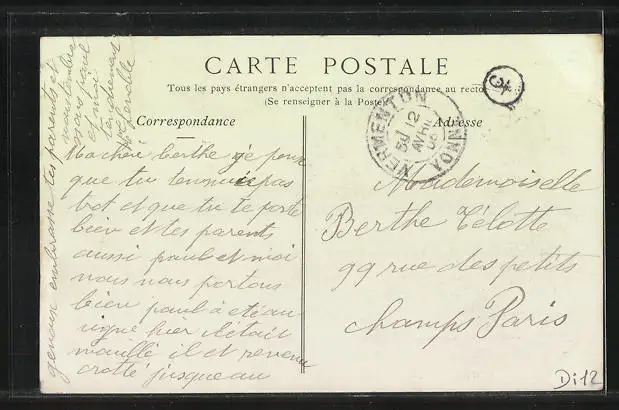 CARTE POSTALE
Tous les pays étrangers n'acceptent pas la correspondance au recto
(Se renseigner à la Poste)
Correspondance
Adresse
VERMENTON
12
AVRIL
YONNE
Ma cher Berthe je pense
que tu tennuie pas
trot et que tu te porte
bien et tes parents
aussi paul et moi
nous nous portons
bien paul à eté au
vigne hier il était
mouillé il et revenu
crotté jusqueau
genoux embrasse tes parents et
pour paul
et moi
Mademoiselle
Berthe Télotte
99 rue des petits
champs Paris
Di12